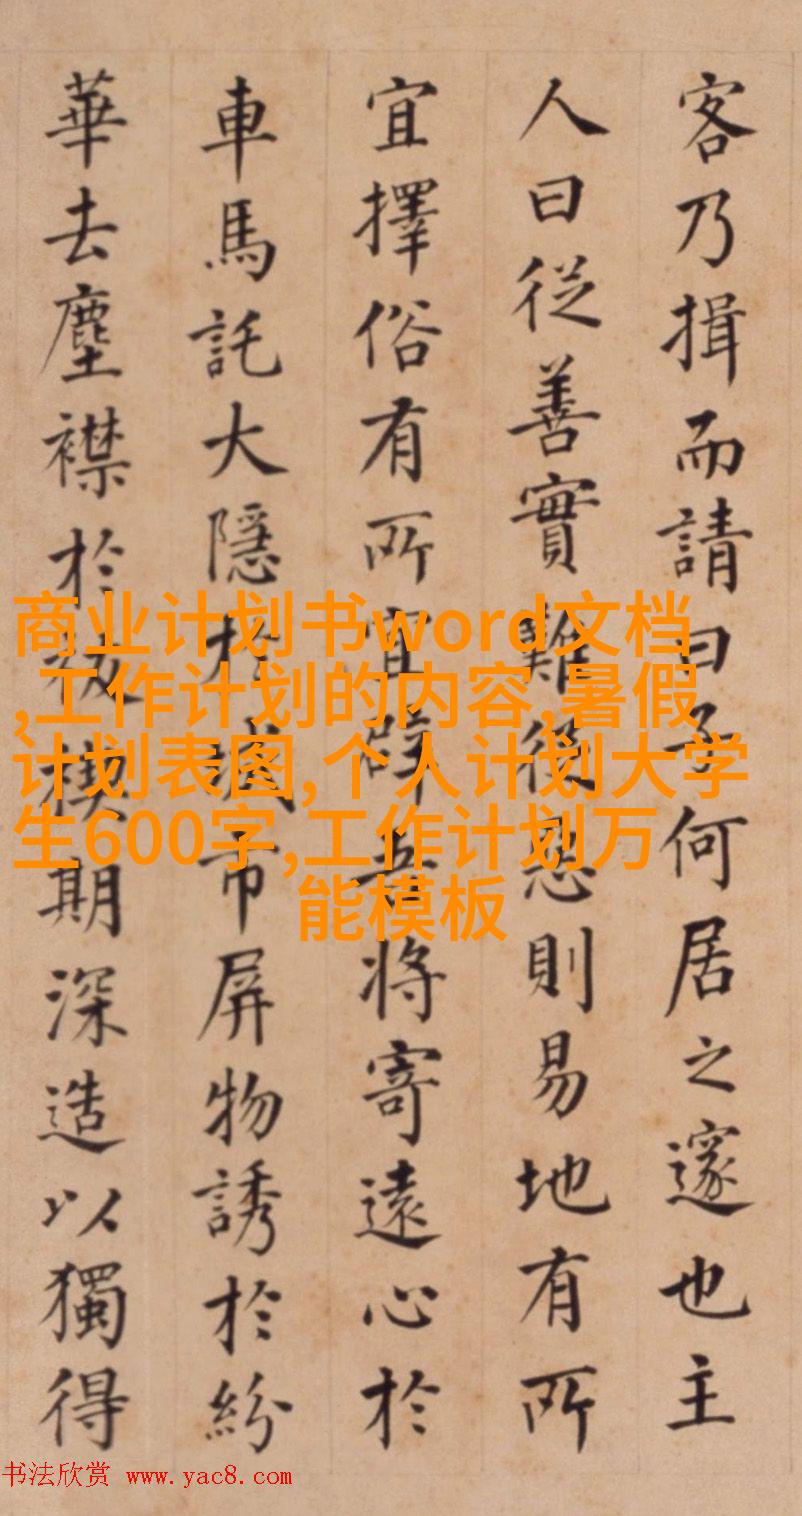 客乃揖而請曰子何居之邃也主
人曰從善實難從惡則易地有所
宜擇俗有所宜辟吾將寄遠心於
車馬託大隱於城市屏物誘於紛
華去塵襟於祓禊期深造以獨得
商业计划书word文档
,工作计划的内容,暑假
计划表图,个人计划大学
生600字,工作计划万
能模板
书法欣赏 www.yac8.com